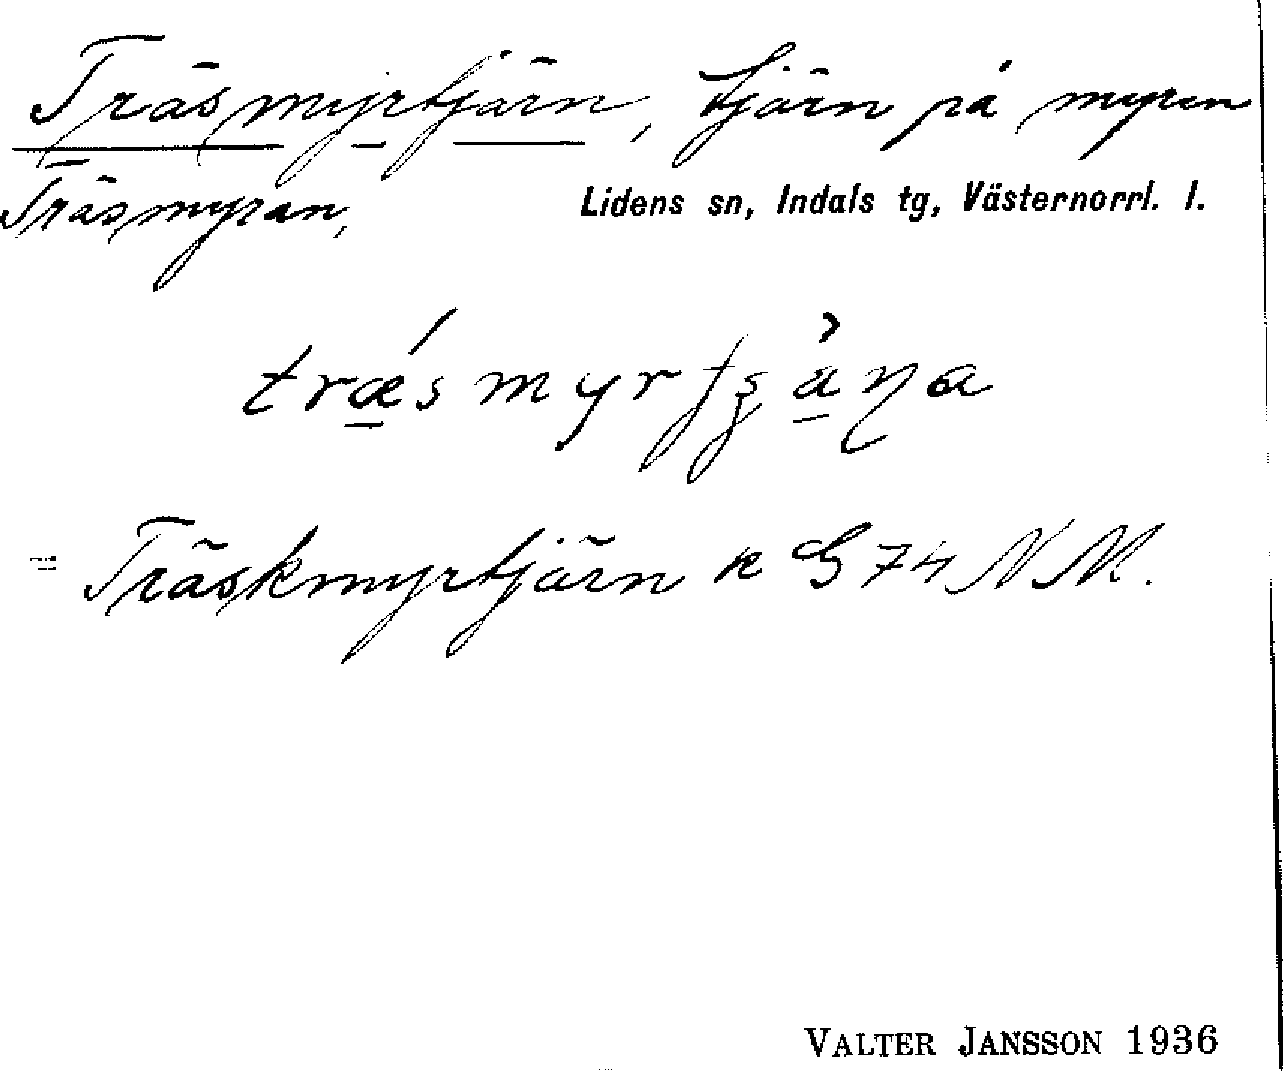 Träsmyrtjärn, tjärn på myren
Träsmyran,
Lidens sn, Indals tg, Västernorrl. l.
= Träskmyrtjärn k G 74 NM.
VALTER JANSSON 1936